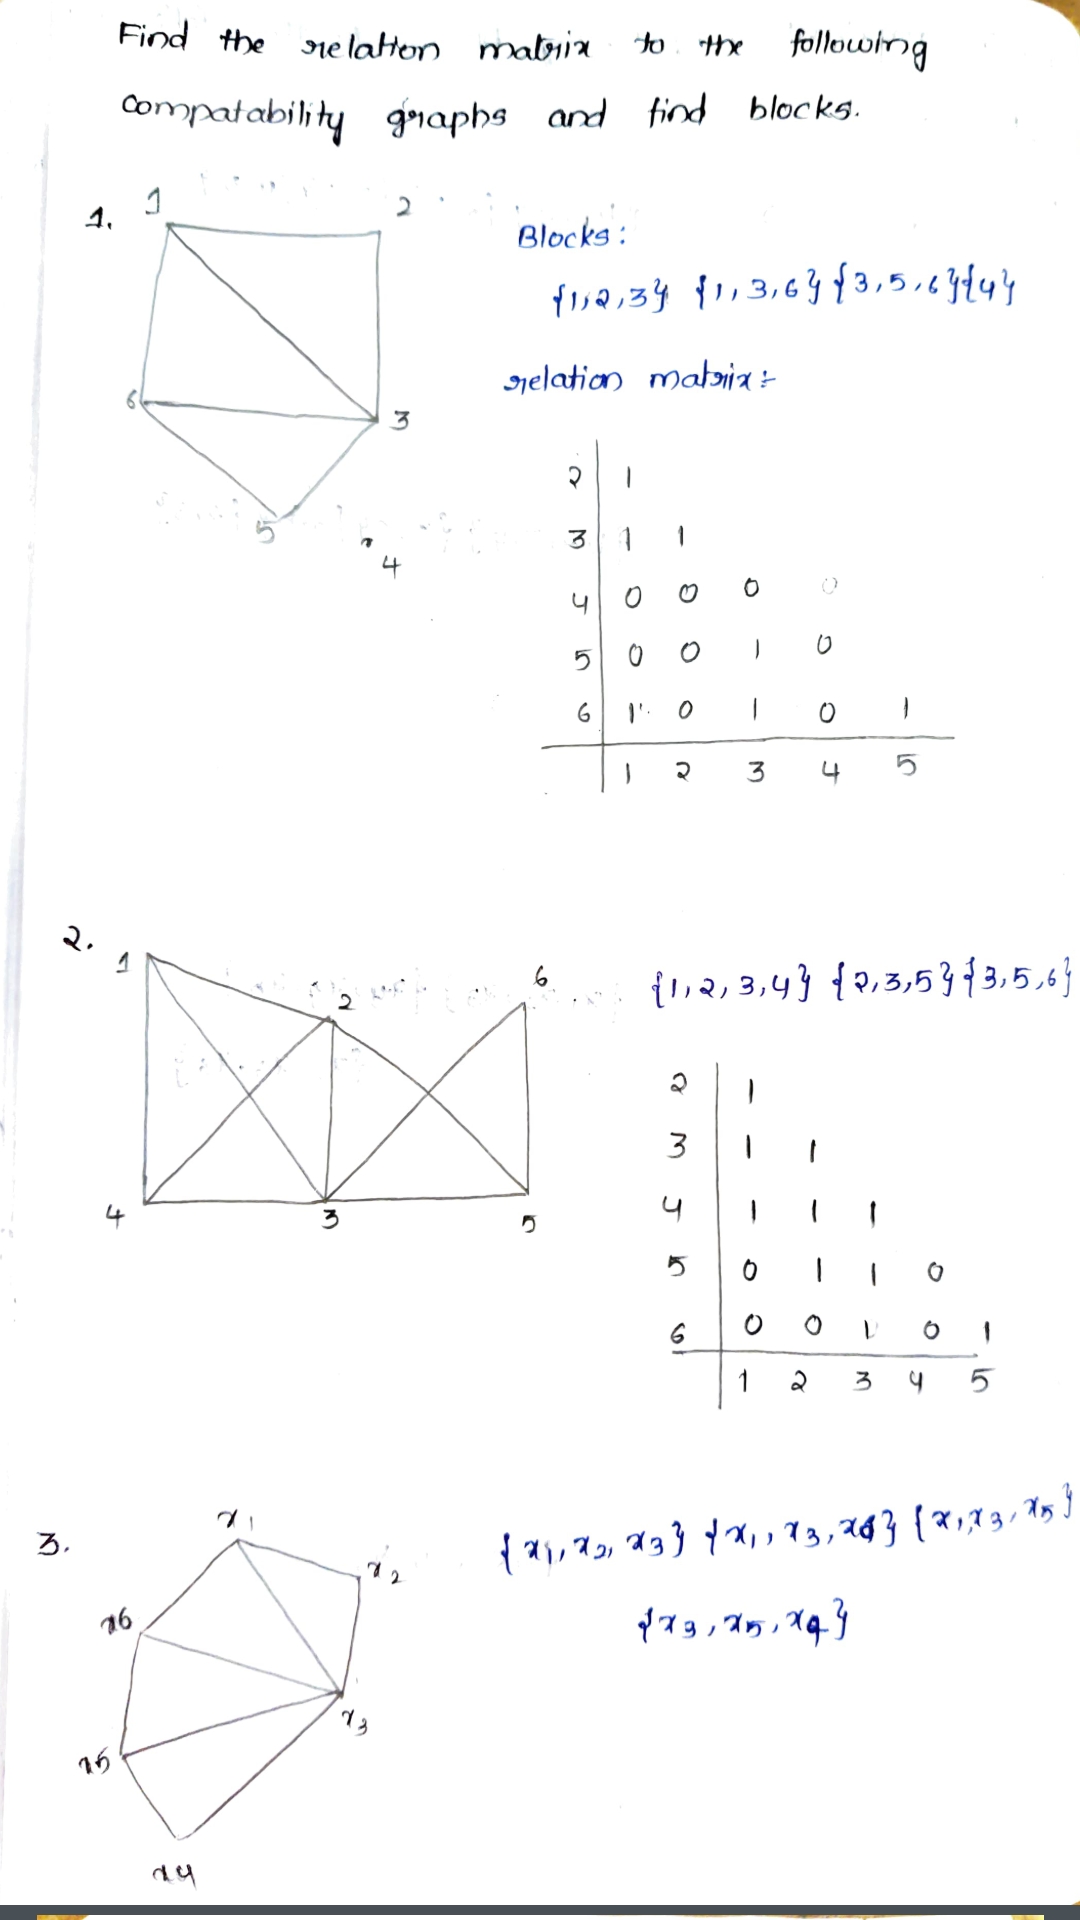 Find the relation matrix to the following
compatability graphs and find blocks.
1.
1
2
6
3
5
4
Blocks:
{1,2,3} {1,3,6} {3,5,6} {4}
relation matrix:-
2 1
3 1 1
4 0 0 0 0
5 0 0 1 0
6 1 0 1 0 1
1 2 3 4 5
2.
1
2
6
4
3
5
{1,2,3,4} {2,3,5} {3,5,6}
2 1
3 1 1
4 1 1 1
5 0 1 1 0
6 0 0 1 0 1
1 2 3 4 5
3.
x1
x2
x6
x3
x5
x4
{x1, x2, x3} {x1, x3, x6} {x1, x3, x5}
{x3, x5, x4}